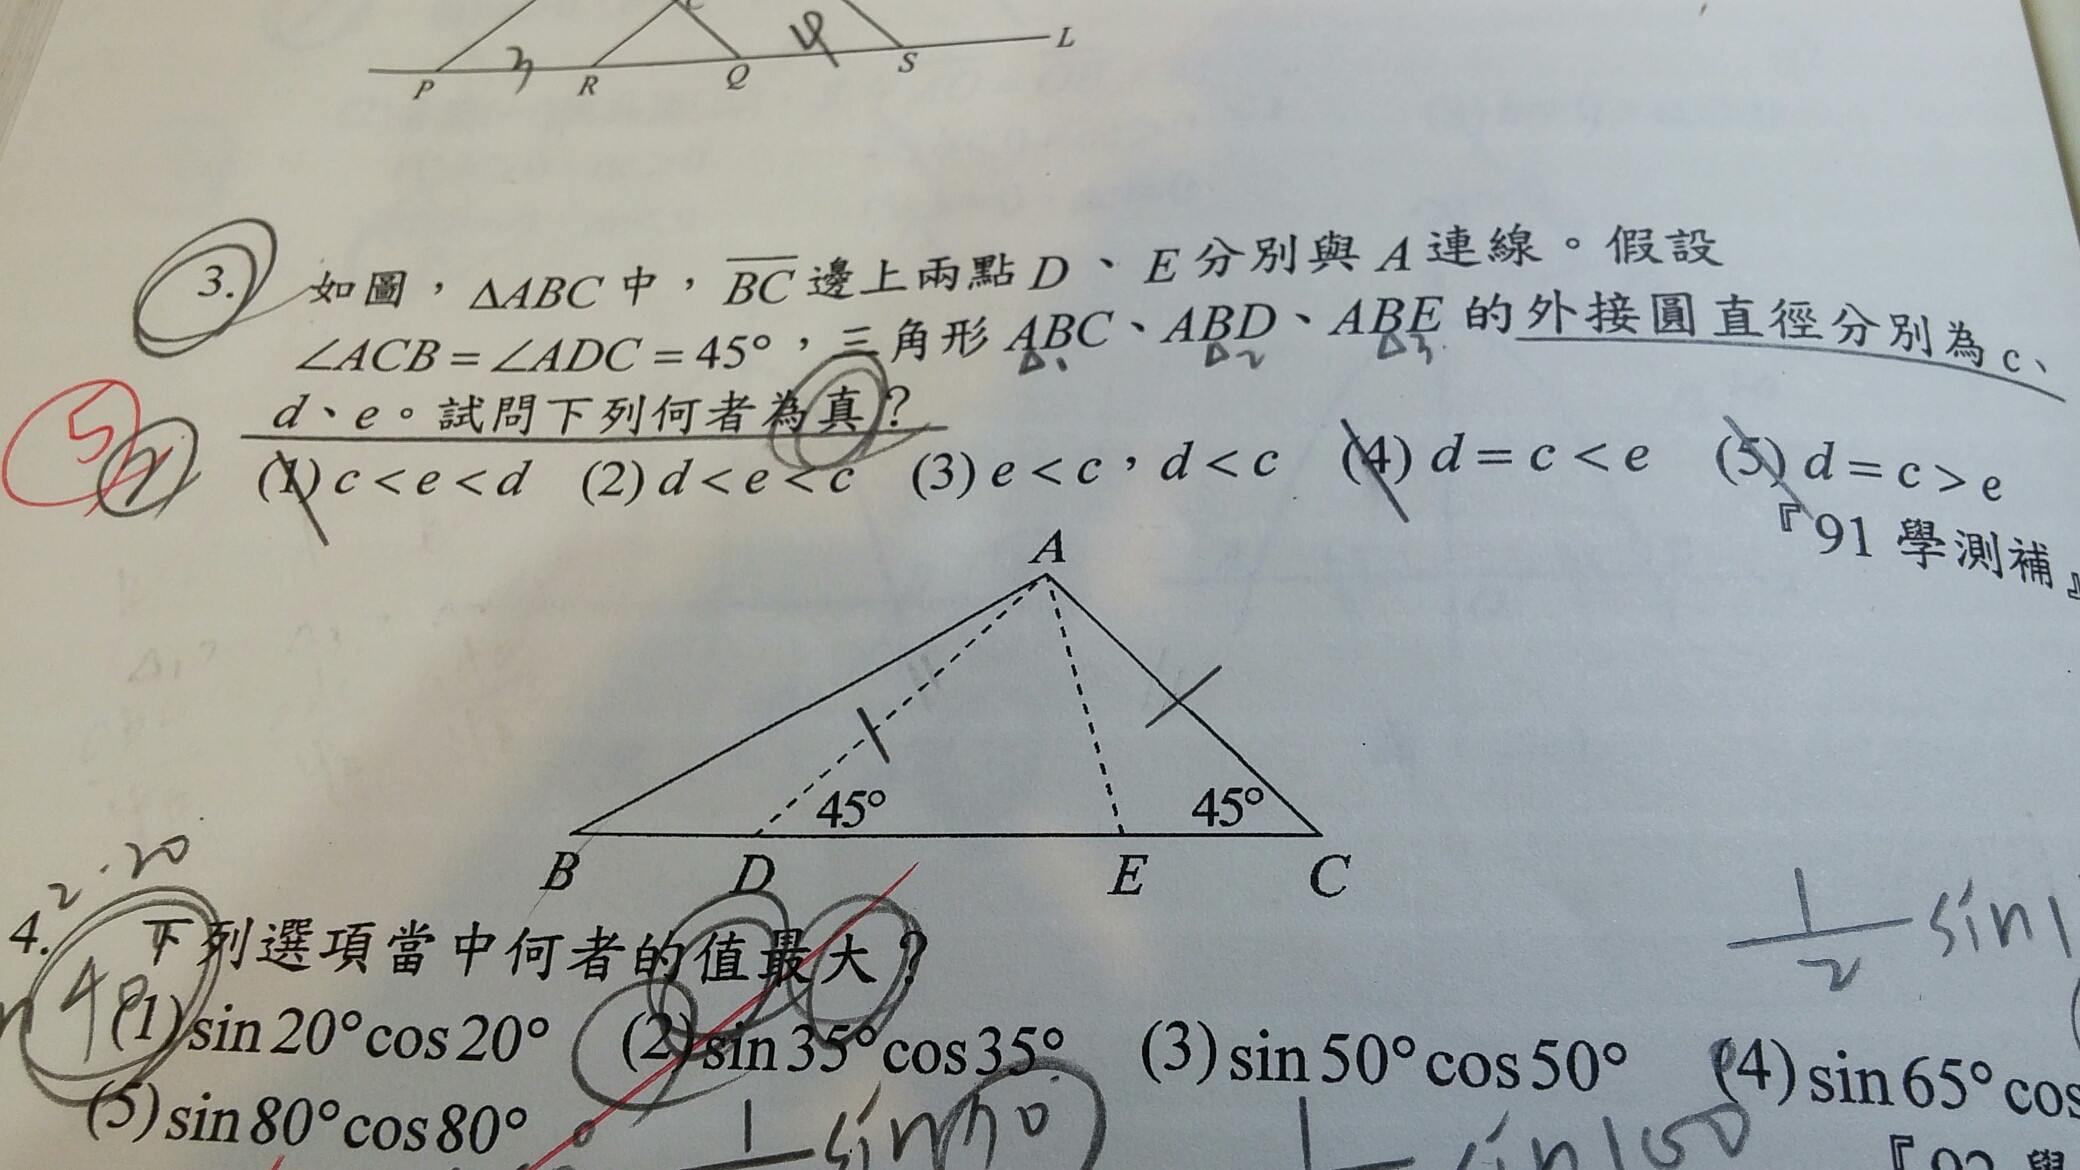 4
L
3
P
R
Q
S
3. 如圖，ΔABC 中，BC 邊上兩點 D、E 分別與 A 連線。假設
∠ACB = ∠ADC = 45°，三角形 ABC、ABD、ABE 的外接圓直徑分別為 c、
Δ1 Δ2 Δ3
d、e。試問下列何者為真？
5
(1) c < e < d (2) d < e < c (3) e < c，d < c (4) d = c < e (5) d = c > e
『91 學測補』
A
45°
45°
B
D
E
C
2.20
4. 下列選項當中何者的值最大？
1/2 sin1
40
(1) sin 20° cos 20° (2) sin 35° cos 35° (3) sin 50° cos 50° (4) sin 65° cos
(5) sin 80° cos 80°
1 sin70°
1 sin100
『92 學